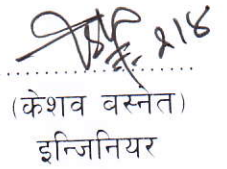 २१४
....................
(केशव वस्नेत)
इन्जिनियर